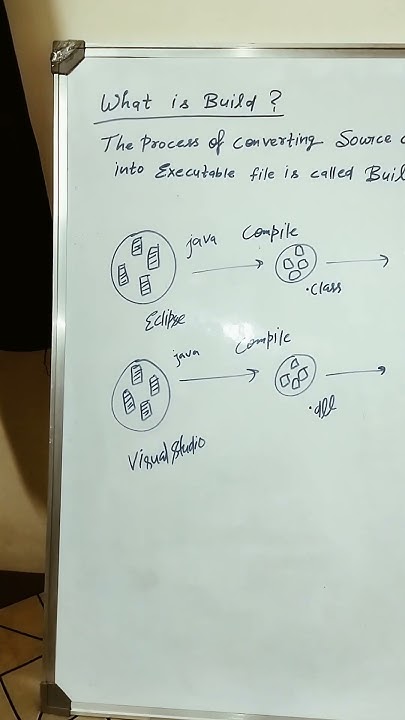 What is Build ?
The Process of converting Source
into Executable file is called Buil
java Compile
.class
Eclipse
java Compile
.dll
Visual Studio